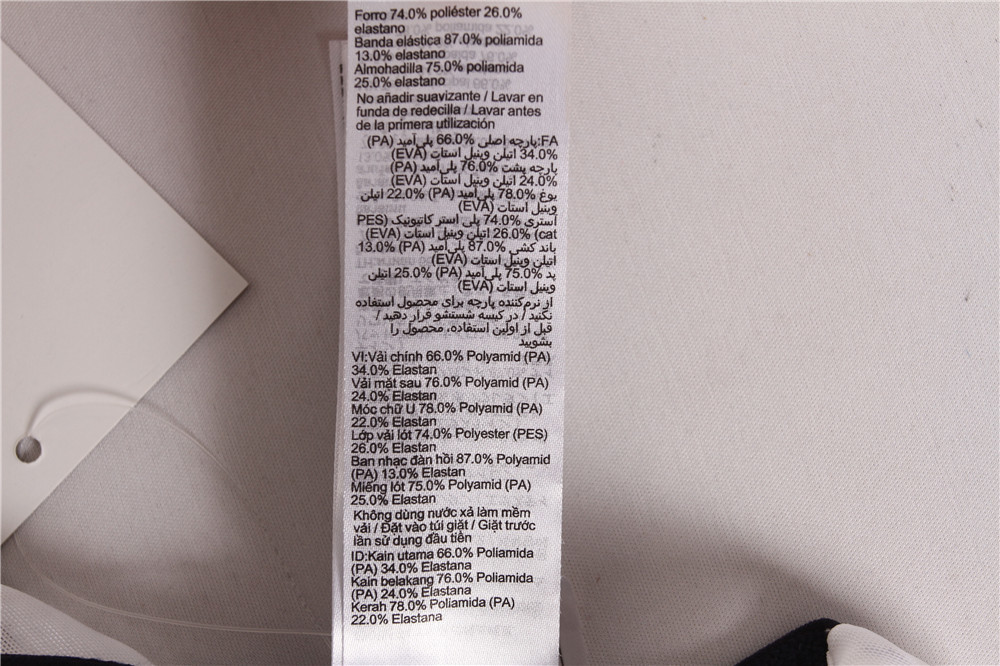 Forro 74.0% poliéster 26.0%
elastano
Banda elástica 87.0% poliamida
13.0% elastano
Almohadilla 75.0% poliamida
25.0% elastano
No añadir suavizante / Lavar en
funda de redecilla / Lavar antes
de la primera utilización
FA:پارچه اصلی 66.0% پلی‌آمید (PA)
34.0% اتیلن وینیل استات (EVA)
پارچه پشت 76.0% پلی‌آمید (PA)
24.0% اتیلن وینیل استات (EVA)
یوغ 78.0% پلی‌آمید (PA) 22.0% اتیلن
وینیل استات (EVA)
آستری 74.0% پلی استر کاتیونیک (PES
cat) 26.0% اتیلن وینیل استات (EVA)
باند کشی 87.0% پلی‌آمید (PA) 13.0%
اتیلن وینیل استات (EVA)
پد 75.0% پلی‌آمید (PA) 25.0% اتیلن
وینیل استات (EVA)
از نرم‌کننده پارچه برای محصول استفاده
نکنید / در کیسه شستشو قرار دهید /
قبل از اولین استفاده، محصول را
بشویید
VI:Vải chính 66.0% Polyamid (PA)
34.0% Elastan
Vải mặt sau 76.0% Polyamid (PA)
24.0% Elastan
Móc chữ U 78.0% Polyamid (PA)
22.0% Elastan
Lớp vải lót 74.0% Polyester (PES)
26.0% Elastan
Ban nhạc đàn hồi 87.0% Polyamid
(PA) 13.0% Elastan
Miếng lót 75.0% Polyamid (PA)
25.0% Elastan
Không dùng nước xả làm mềm
vải / Đặt vào túi giặt / Giặt trước
lần sử dụng đầu tiên
ID:Kain utama 66.0% Poliamida
(PA) 34.0% Elastana
Kain belakang 76.0% Poliamida
(PA) 24.0% Elastana
Kerah 78.0% Poliamida (PA)
22.0% Elastana